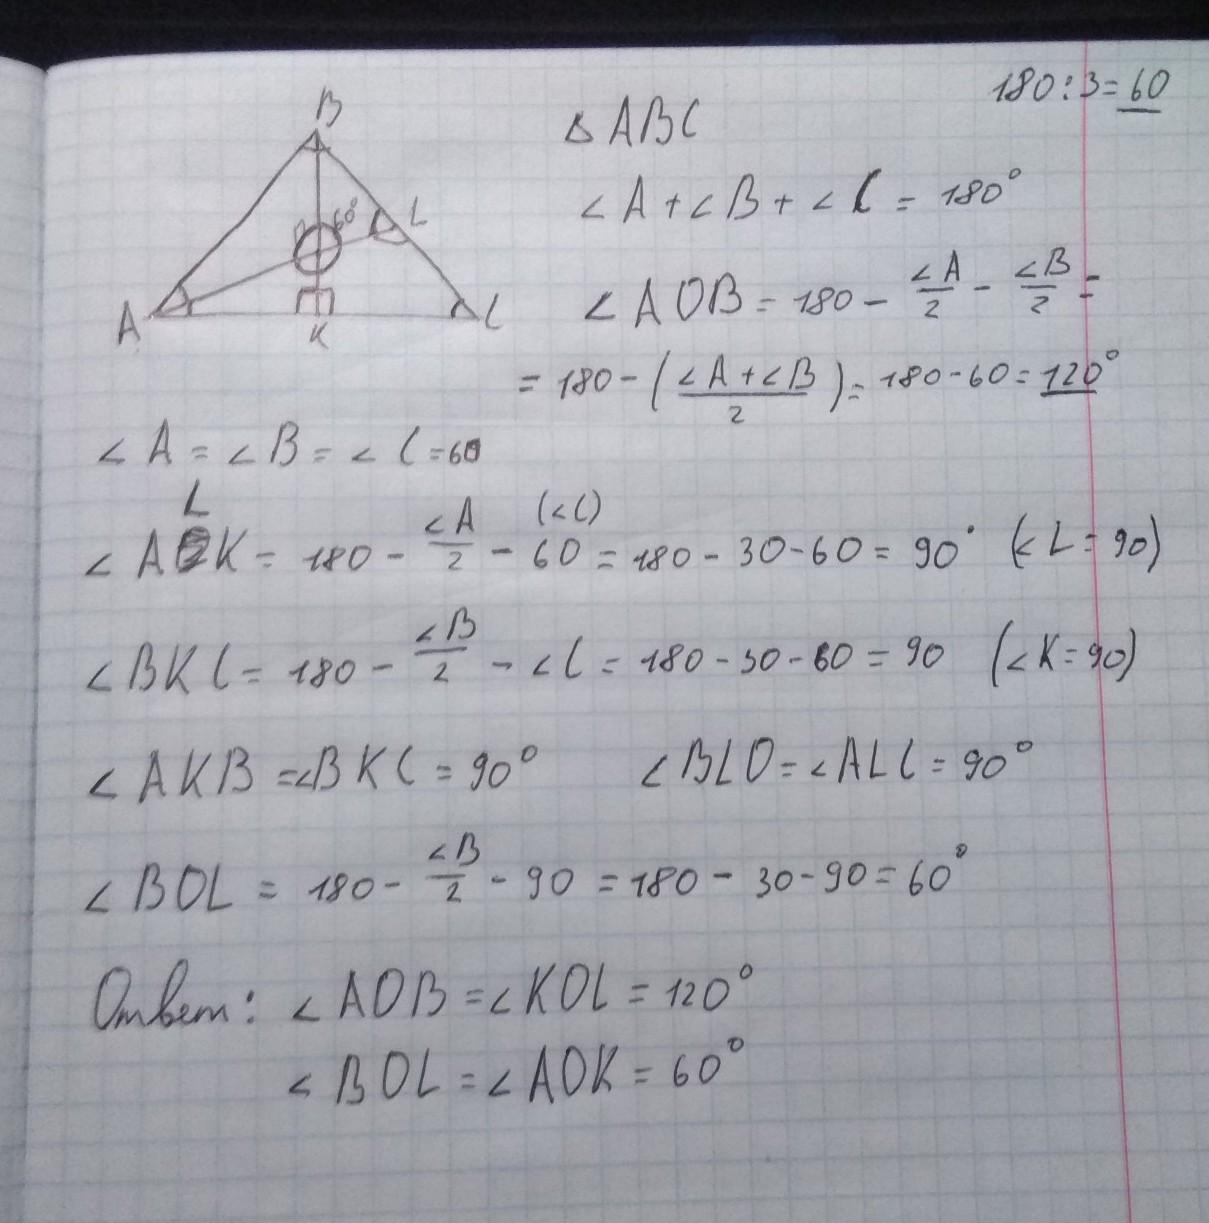 180:3=60
B
O 60°
L
A
K
C
△ABC
∠A+∠B+∠C=180°
∠AOB=180-∠A/2-∠B/2=
=180-(∠A+∠B/2)=180-60=120°
∠A=∠B=∠C=60
L
∠AK=180-∠A/2-60(∠C)=180-30-60=90° (∠L=90)
∠BKC=180-∠B/2-∠C=180-30-60=90 (∠K=90)
∠AKB=∠BKC=90° ∠BLO=∠ALC=90°
∠BOL=180-∠B/2-90=180-30-90=60°
Ответ: ∠AOB=∠KOL=120°
∠BOL=∠AOK=60°